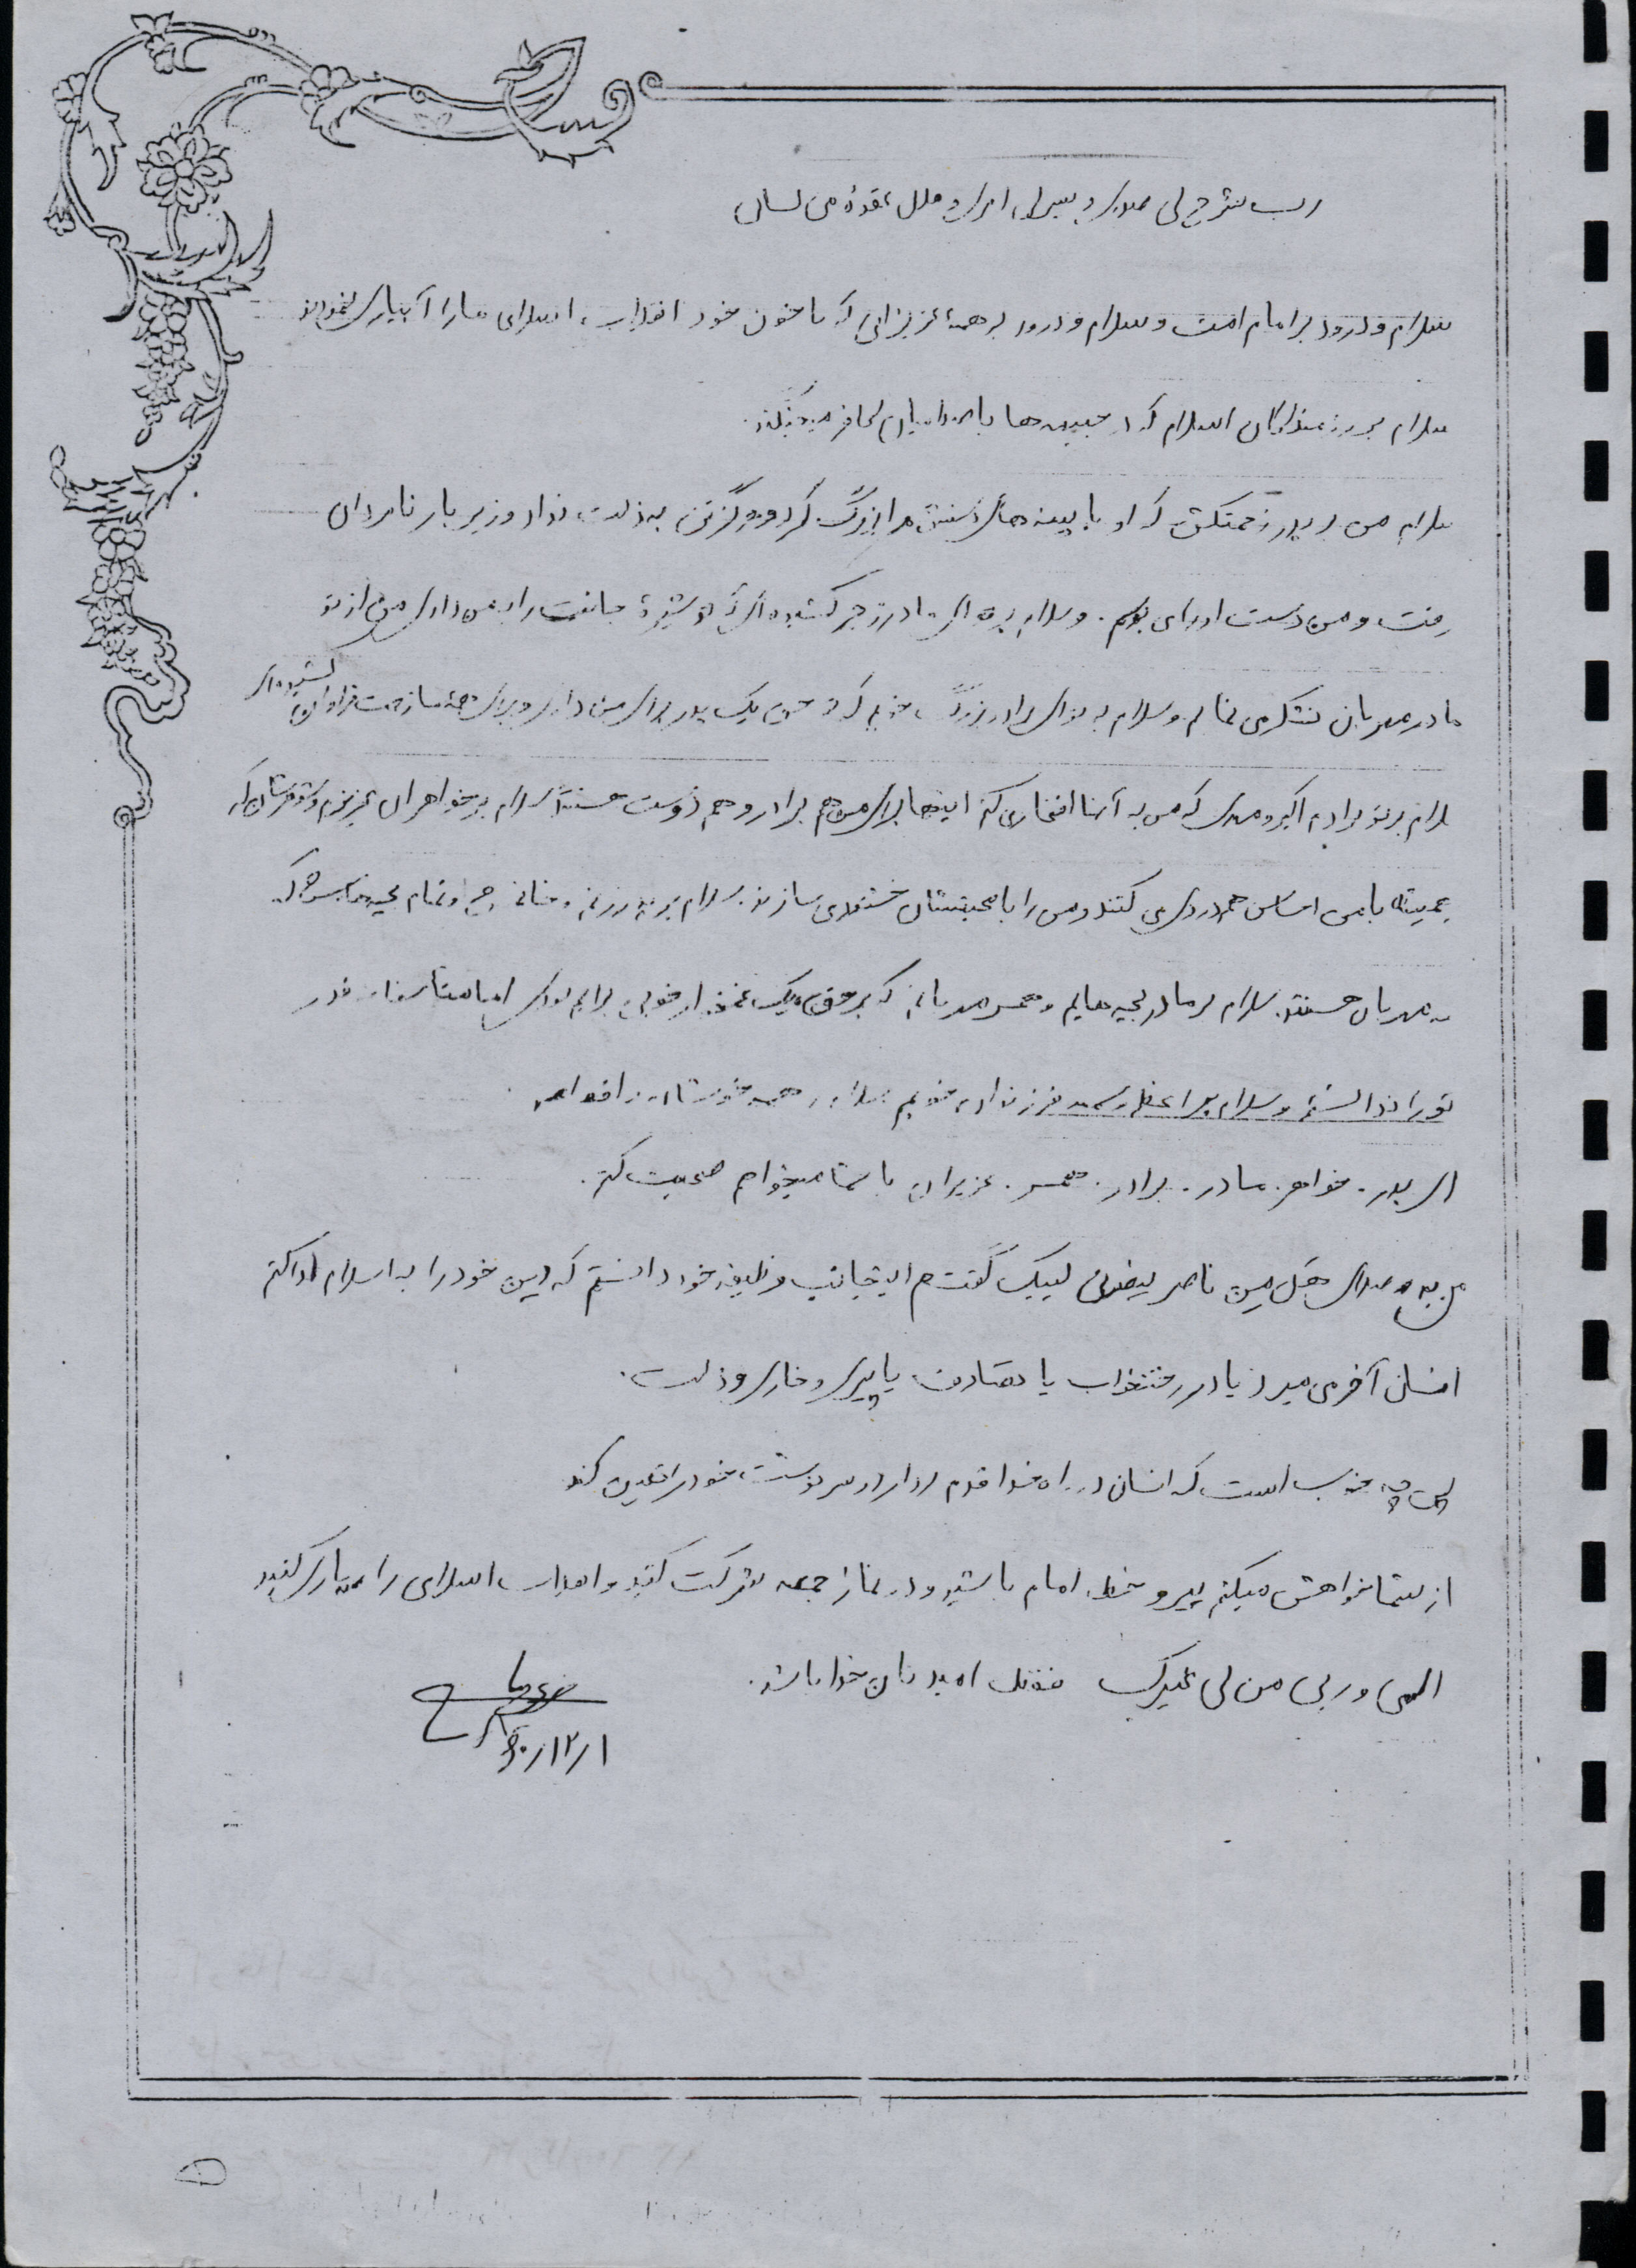 رب اشرح لی صدری و یسرلی امری و حلل عقدة من لسانی
سلام و درود بر امام امت و سلام و درود بر همهٔ عزیزانی که با خون خود انقلاب اسلامی ما را آبیاری نمودند
سلام بر رزمندگان اسلام که در جبهه ها با صدامیان کافر میجنگند.
سلام من بر پدر زحمتکش که او با پینه های دستش مرا بزرگ کرد و هرگز تن به ذلت نداد و زیر بار نامردان
رفت و من دست او را می بوسم. و سلام بر تو ای مادر زجر کشیده ای که تو شیرهٔ جانت را به من دادی من از تو
مادر مهربان تشکر می نمایم و سلام به تو ای برادر بزرگ خوبم که تو حق یک پدر برای من داری و برای همهٔ ما زحمت فراوان کشیده ای
سلام بر تو برادرم اکبر و مهدی که من به آنها افتخار می کنم اینها برای من هم برادر و هم دوست هستند سلام بر خواهران عزیزم و شوهرشان که
همیشه با من احساس همدردی می کنند و من را با محبتشان خشنود می سازند سلام بر پدر زنم و تمام بچه هایش که
مهربان هستند. سلام بر مادر بچه هایم و همسر مهربانم که بر حق یک غمخوار خوبی برایم بودی اما متاسفانه قدر
تو را ندانستم و سلام بر فرزندان خوبم سلام بر همه خویشان و اقوام.
ای پدر. خواهر. مادر. برادر. همسر. عزیزان با شما میخواهم صحبت کنم.
من به صدای هل من ناصر ینصرنی لبیک گفتم اینجانب وظیفه خود دانستم که دین خود را به اسلام ادا کنم
انسان آخر می میرد یا در رختخواب یا تصادف یا پیری و خاری و ذلت.
پس چه خوب است که انسان در راه خدا قدم بردارد و سرنوشت خود را تعیین کند
از شما خواهش میکنم پیرو خط امام باشید و در نماز جمعه شرکت کنید و انقلاب اسلامی را یاری کنید
الهی و ربی من لی غیرک فقط امیدتان خدا باشد.
۶۰/۱۲/۱